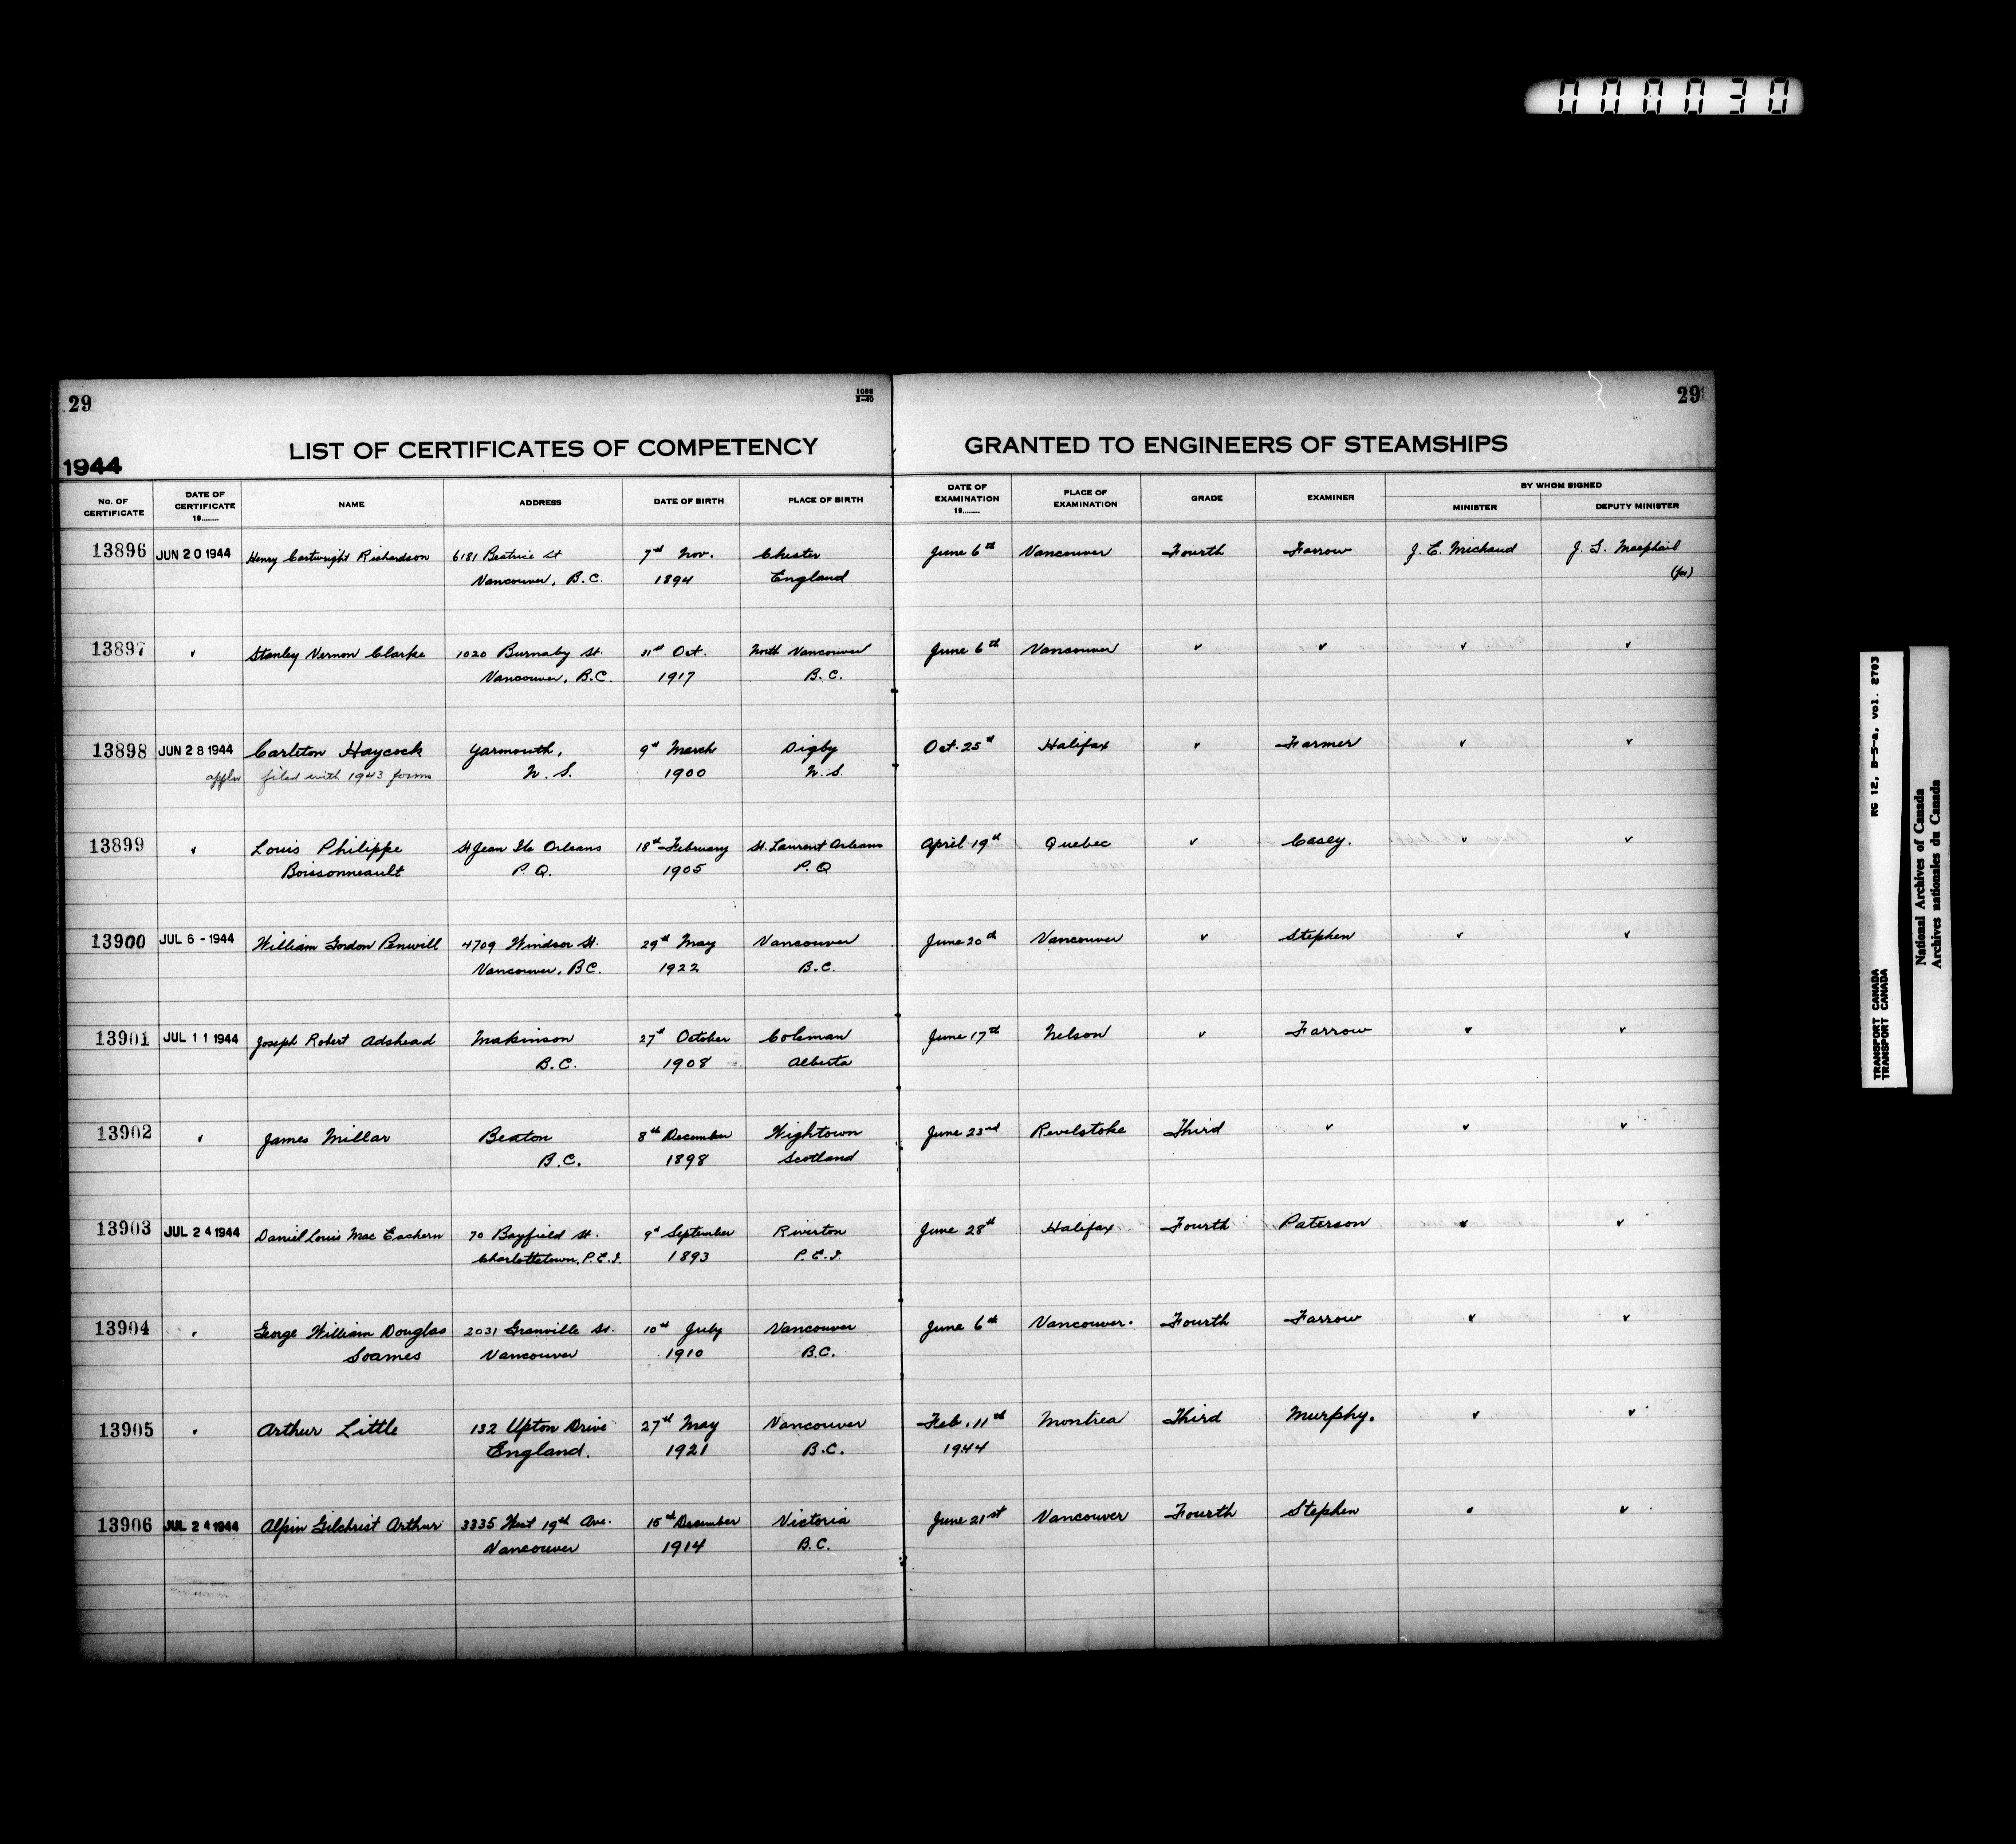 000030
29
1088
X-40
29
LIST OF CERTIFICATES OF COMPETENCY GRANTED TO ENGINEERS OF STEAMSHIPS
1944
No. OF CERTIFICATE DATE OF CERTIFICATE 19........ NAME ADDRESS DATE OF BIRTH PLACE OF BIRTH DATE OF EXAMINATION 19........ PLACE OF EXAMINATION GRADE EXAMINER BY WHOM SIGNED MINISTER DEPUTY MINISTER
13896 JUN 20 1944 Henry Cartwright Richardson 6181 Beatrice St 7th Nov. Chester June 6th Vancouver Fourth Farrow J. E. Michaud J. G. Macphail
Vancouver, B.C. 1894 England (for)
13897 " Stanley Vernon Clarke 1020 Burnaby St. 31st Oct. North Vancouver June 6th Vancouver " " " "
Vancouver, B.C. 1917 B.C.
13898 JUN 28 1944 Carleton Haycock Yarmouth, 9th March Digby Oct. 25th Halifax " Farmer " "
appln filed with 1943 forms N.S. 1900 N.S.
13899 " Louis Philippe St Jean Ile Orleans 18th February St. Laurent Orleans April 19th Quebec " Casey. " "
Boissonneault P.Q. 1905 P.Q
13900 JUL 6 - 1944 William Gordon Penwill 4709 Windsor St. 29th May Vancouver June 20th Vancouver " Stephen " "
Vancouver, BC. 1922 B.C.
13901 JUL 11 1944 Joseph Robert Adshead Makinson 27th October Coleman June 17th Nelson " Farrow " "
B.C. 1908 Alberta
13902 " James Millar Beaton 8th December Wightown June 23rd Revelstoke Third " " "
B.C. 1898 Scotland
13903 JUL 24 1944 Daniel Louis Mac Eachern 70 Bayfield St. 9th September Riverton June 28th Halifax Fourth Paterson " "
Charlottetown, P.E.I. 1893 P.E.I.
13904 " George William Douglas 2031 Granville St. 10th July Vancouver June 6th Vancouver. Fourth Farrow " "
Soames Vancouver 1910 B.C.
13905 " Arthur Little 132 Upton Drive 27th May Vancouver Feb. 11th Montrea Third Murphy. " "
England. 1921 B.C. 1944
13906 JUL 24 1944 Alpin Gilchrist Arthur 3335 West 19th Ave. 15th December Victoria June 21st Vancouver Fourth Stephen " "
Vancouver 1914 B.C.
RG 12, B-5-a, vol. 2703
TRANSPORT CANADA
TRANSPORT CANADA
National Archives of Canada
Archives nationales du Canada